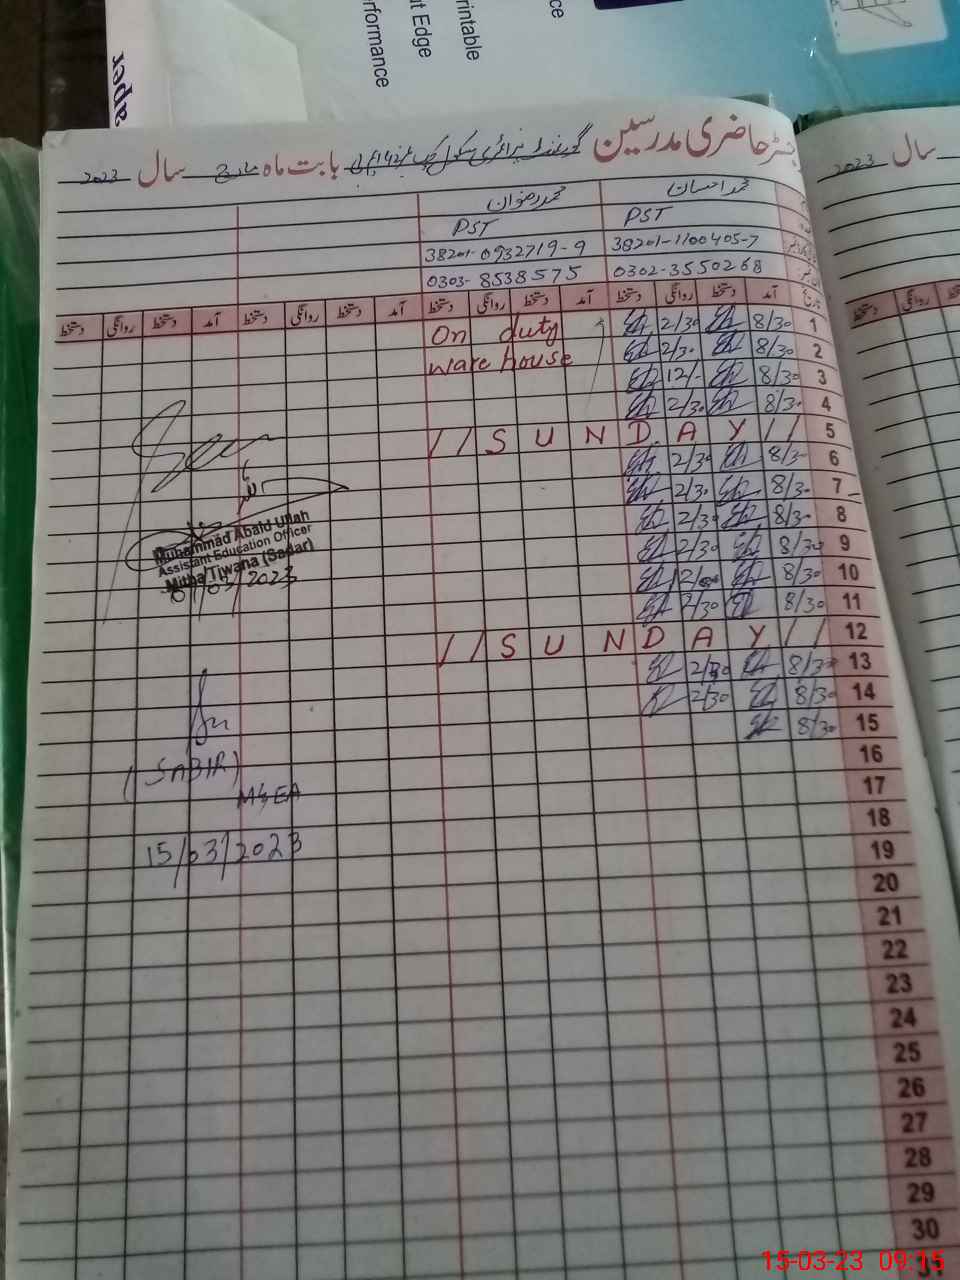 ce
rintable
t Edge
rformance
aper
رجسٹر حاضری مدرسین گورنمنٹ پرائمری سکول چک نمبر بابت ماہ مارچ سال 2023
سال 2023
محمد احسان محمد رضوان
PST PST
38201-1100405-7 38201-0932719-9
0302-3550268 0303-8538575
تاریخ آمد دستخط روانگی دستخط آمد دستخط روانگی دستخط آمد دستخط روانگی دستخط آمد دستخط روانگی دستخط
روانگی دستخط
1 8/30 2/30 On duty
2 8/30 2/30 ware house
3 8/30 12/-
4 8/30 2/30
5 // S U N D A Y //
6 8/30 2/30
7 8/30 2/30
8 8/30 2/30
9 8/30 2/30
10 8/30
11 8/30 2/30
12 // S U N D A Y //
13 8/30 2/30
14 8/30 2/30
15 8/30
16
17
18
19
20
21
22
23
24
25
26
27
28
29
30
31
Muhammad Abaid Ullah
Assistant Education Officer
Mitha Tiwana (Sadar)
(SABIR)
MEA
15/03/2023
15-03-23 09:15